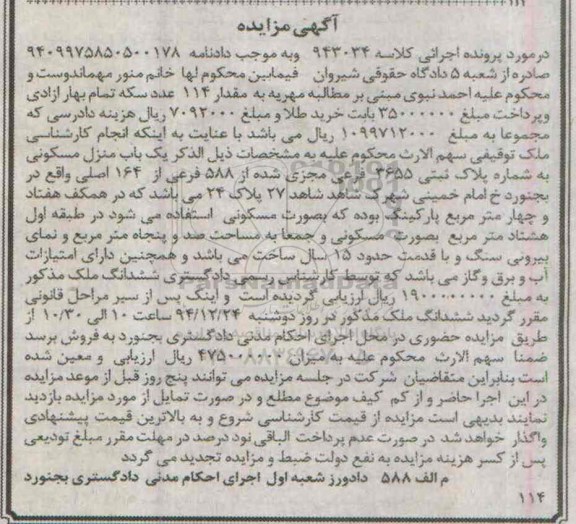 آگهی مزایده
درمورد پرونده اجرائی کلاسه ۹۴۳۰۳۴ وبه موجب دادنامه ۹۴۰۹۹۷۵۸۵۰۵۰۰۱۷۸
صادره از شعبه ۵ دادگاه حقوقی شیروان فیمابین محکوم لها خانم منور مهماندوست و
محکوم علیه احمد نبوی مبنی بر مطالبه مهریه به مقدار ۱۱۴ عدد سکه تمام بهار آزادی
وپرداخت مبلغ ۳۵۰۰۰۰۰۰ بابت خرید طلا و مبلغ ۷۰۹۲۰۰۰ ریال هزینه دادرسی که
مجموعا به مبلغ ۱۰۹۹۷۱۲۰۰۰ ریال می باشد با عنایت به اینکه انجام کارشناسی
ملک توقیفی سهم الارث محکوم علیه به مشخصات ذیل الذکر یک باب منزل مسکونی
به شماره پلاک ثبتی ۳۶۵۵ فرعی مجزی شده از ۵۸۸ فرعی از ۱۶۴ اصلی واقع در
بجنورد خ امام خمینی شهرک شاهد شاهد ۲۷ پلاک ۲۴ می باشد که در همکف هفتاد
و چهار متر مربع پارکینگ بوده که بصورت مسکونی استفاده می شود در طبقه اول
هشتاد متر مربع بصورت مسکونی و جمعا به مساحت صد و پنجاه متر مربع و نمای
بیرونی سنگ و با قدمت حدود ۱۵ سال ساخت می باشد و همچنین دارای امتیازات
آب و برق وگاز می باشد که توسط کارشناس رسمی دادگستری ششدانگ ملک مذکور
به مبلغ ۱۹۰۰۰۰۰۰۰۰ ریال ارزیابی گردیده است و اینک پس از سیر مراحل قانونی
مقرر گردید ششدانگ ملک مذکور در روز دوشنبه ۹۴/۱۲/۲۴ ساعت ۱۰ الی ۱۰/۳۰ از
طریق مزایده حضوری در محل اجرای احکام مدنی دادگستری بجنورد به فروش برسد
ضمنا سهم الارث محکوم علیه به میزان ۴۷۵۰۰۸۰۰۰ ریال ارزیابی و معین شده
است بنابراین متقاضیان شرکت در جلسه مزایده می توانند پنج روز قبل از موعد مزایده
در این اجرا حاضر و از کم کیف موضوع مطلع و در صورت تمایل از مورد مزایده بازدید
نمایند بدیهی است مزایده از قیمت کارشناسی شروع و به بالاترین قیمت پیشنهادی
واگذار خواهد شد در صورت عدم پرداخت الباقی نود درصد در مهلت مقرر مبلغ تودیعی
پس از کسر هزینه مزایده به نفع دولت ضبط و مزایده تجدید می گردد
م الف ۵۸۸ دادورز شعبه اول اجرای احکام مدنی دادگستری بجنورد
۱۱۴